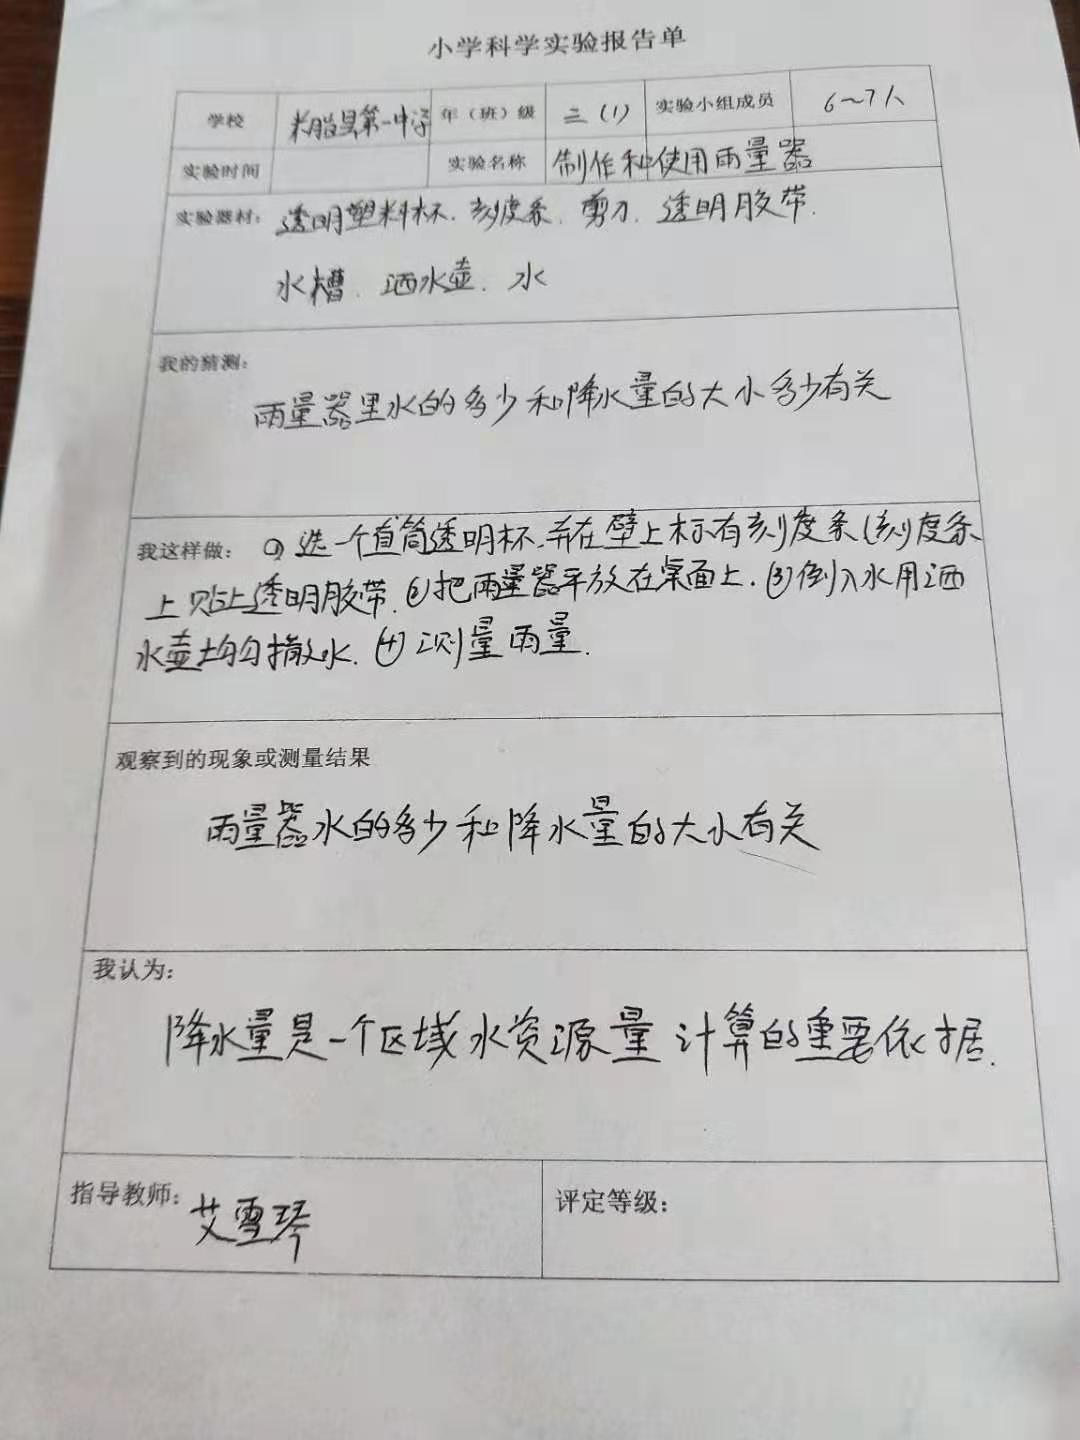 小学科学实验报告单
学校 米脂县第一中学 年（班）级 三（1） 实验小组成员 6～7人
实验时间 实验名称 制作和使用雨量器
实验器材： 透明塑料杯、刻度条、剪刀、透明胶带、
水槽、洒水壶、水
我的猜测：
雨量器里水的多少和降水量的大小多少有关
我这样做： ①选一个直筒透明杯、并在壁上标有刻度条（刻度条
上贴上透明胶带.②把雨量器平放在桌面上.③倒入水用洒
水壶均匀撒水.④测量雨量.
观察到的现象或测量结果
雨量器水的多少和降水量的大小有关
我认为：
降水量是一个区域水资源量计算的重要依据.
指导教师： 艾雪琴 评定等级：